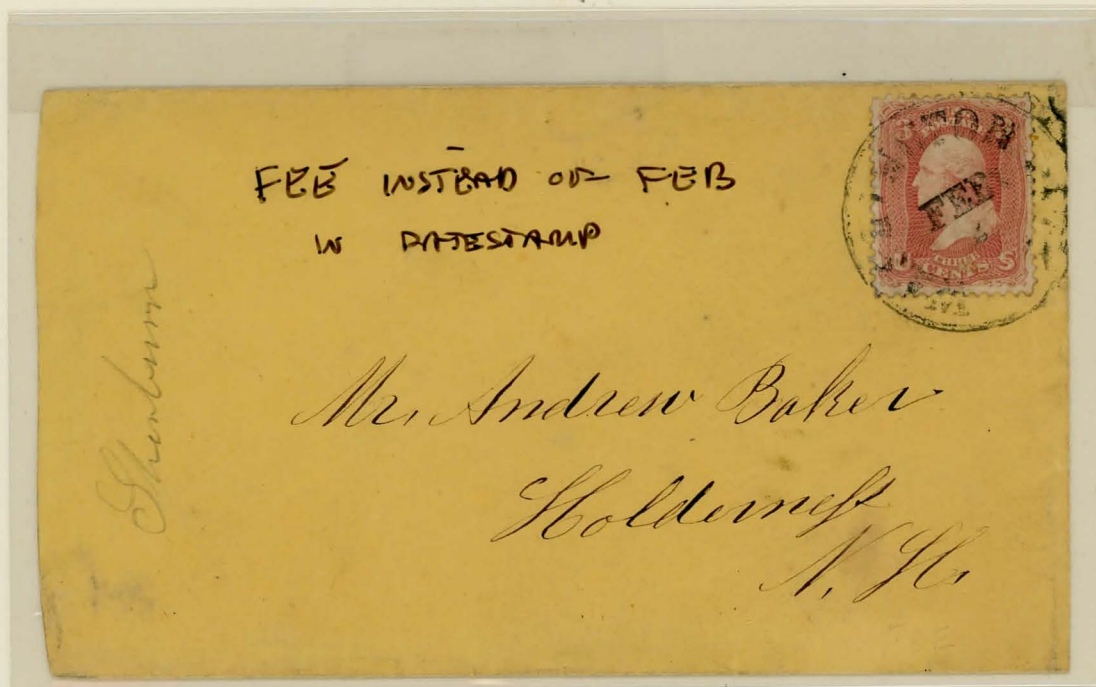 FEE INSTEAD OF FEB
IN DATESTAMP
FEE
THREE
CENTS
Mr. Andrew Baker
Holderness
N. H.